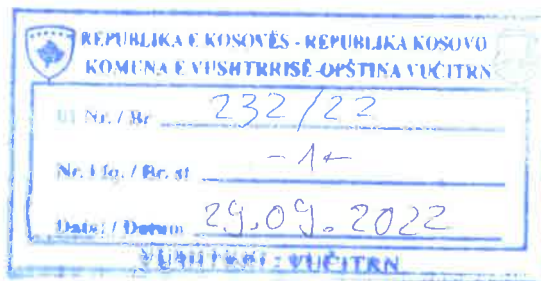 REPUBLIKA E KOSOVËS - REPUBLIKA KOSOVO
KOMUNA E VUSHTRRISË - OPŠTINA VUČITRN
Nr. / Br 232/22
Nr. i fq. / Br. st -1-
Data / Datum 29.09.2022
VUČITRN